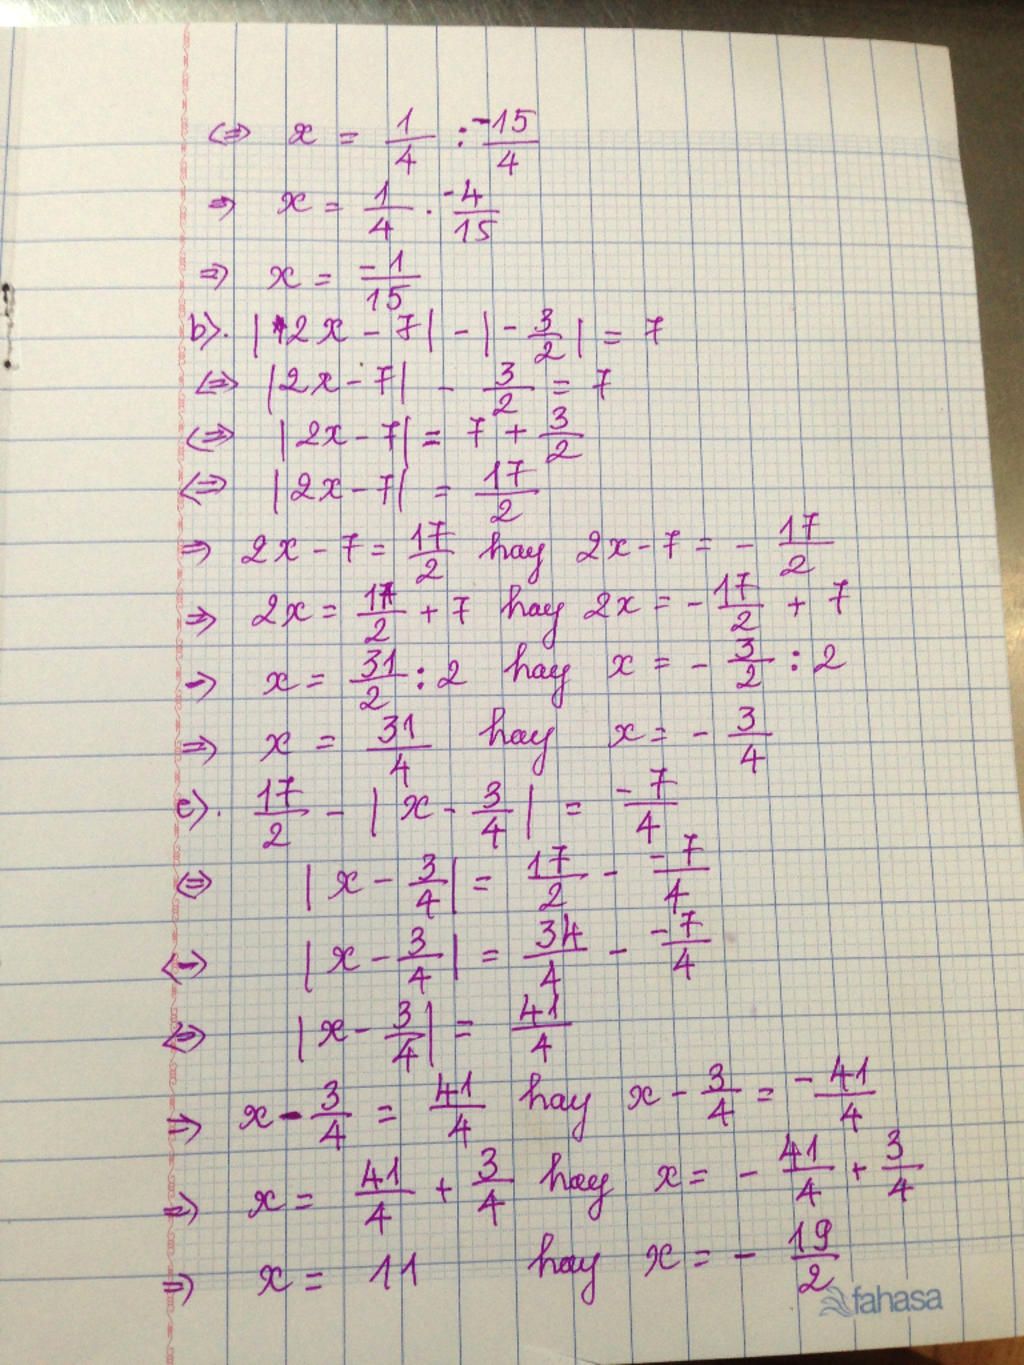 ⇔ x = 1/4 : -15/4
⇒ x = 1/4 . -4/15
⇒ x = -1/15
b). |2x - 7| - |- 3/2| = 7
⇔ |2x - 7| - 3/2 = 7
⇔ |2x - 7| = 7 + 3/2
⇔ |2x - 7| = 17/2
⇒ 2x - 7 = 17/2 hay 2x - 7 = - 17/2
⇒ 2x = 17/2 + 7 hay 2x = - 17/2 + 7
⇒ x = 31/2 : 2 hay x = - 3/2 : 2
⇒ x = 31/4 hay x = - 3/4
c). 17/2 - |x - 3/4| = -7/4
⇔ |x - 3/4| = 17/2 - -7/4
⇔ |x - 3/4| = 34/4 - -7/4
⇔ |x - 3/4| = 41/4
⇒ x - 3/4 = 41/4 hay x - 3/4 = - 41/4
⇒ x = 41/4 + 3/4 hay x = - 41/4 + 3/4
⇒ x = 11 hay x = - 19/2
fahasa